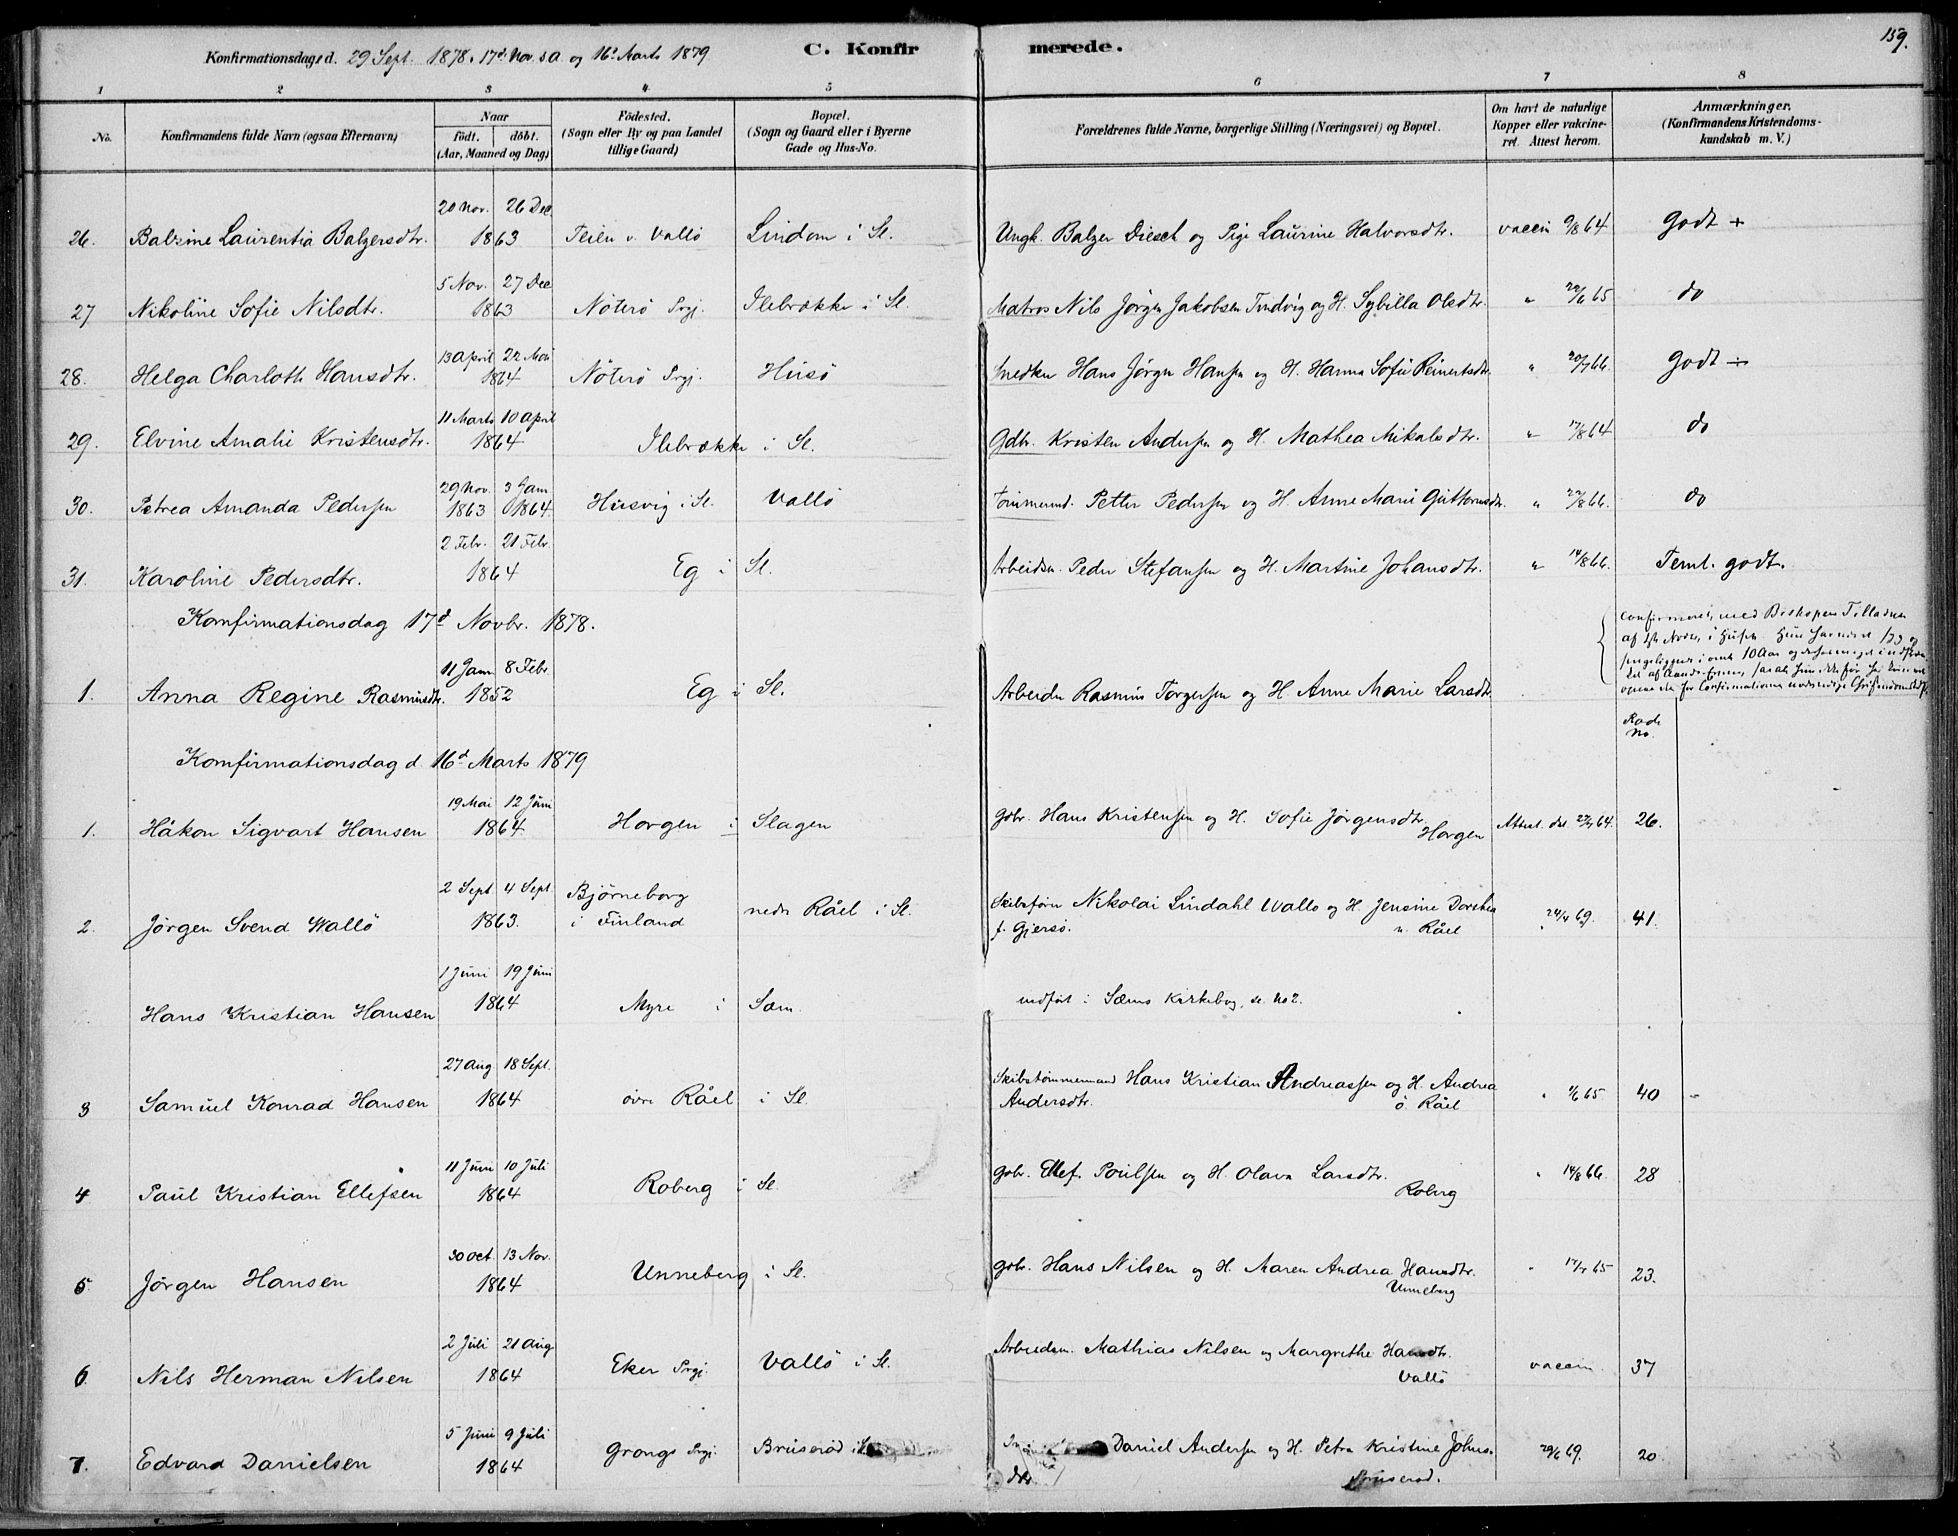 159.
Konfirmationsdage d. 29 Sept. 1878. 17d. Nov. s.a. og 16d. Marts 1879
C. Konfirmerede.
1 2 3 4 5 6 7 8
No. Konfirmandens fulde Navn (ogsaa Efternavn) Naar födt. döbt. (Aar, Maaned og Dag) Födested. (Sogn eller By og paa Landet tillige Gaard) Bopæl. (Sogn og Gaard eller i Byerne Gade og Hus-No. Forældrenes fulde Navne, borgerlige Stilling (Næringsvei) og Bopæl. Om havt de naturlige Kopper eller vakcineret. Attest herom. Anmærkninger. (Konfirmandens Kristendomskundskab m. V.)
26. Balzine Laurentia Balzersdtr. 20 Nov. 26 Dec. 1863 Teien v. Vallö Lindom i Sl. Ungk. Balzer Diesch og Pige Laurine Halvorsdtr. vaccin 9/8 64 Godt +
27 Nikoline Sofie Nilsdtr. 5 Nov. 27 Dec 1863 Nöterö Prgj. Ilebrække i Sl. Matros Nils Jørgen Jakobsen Tundvig og H. Sybilla Olsdtr. " 22/6 65 do
28. Helga Charloth Hansdtr. 13 April 22 Mai 1864 Nöterö Prgj. Husö Snedker Hans Jørgn Hansen og H. Hanna Sofie Reinertsdtr. " 20/7 66. Godt ÷
29. Elvine Amalie Kristensdtr. 11 Marts 10 April 1864 Ilebrække i Sl. Gdbr. Kristen Andersen og H. Mathea Mikalsdtr. " 17/8 64 do
30. Petrea Amanda Pedersen 29 Nov. 1863 3 Jan 1864 Husvig i Sl. Vallö Tömmermd. Petter Pedersen og H. Anne Marie Guttormsdtr. " 22/8 66. do
31. Karoline Pedersdtr. 2 Febr. 21 Febr. 1864 Eg i Sl. Arbeidsm. Peder Stefansen og H. Martine Johansdtr. " 14/8 66. Teml. godt.
Konfirmationsdag 17d Novbr. 1878.
1. Anna Regine Rasmusdtr. 11 Jan 8 Febr. 1852 Eg i Sl. Arbeider Rasmus Torgersen og H. Anne Marie Larsdtr. Confirmeret med Biskopens Tilladelse
Rode No.
Konfirmationsdag d. 16d Marts 1879
1. Håkon Sigvart Hansen 19 Mai 12 Juni 1864 Horgen i Slagen Gdbr. Hans Kristensen og H. Sofie Jørgensdtr. Horgen Attest. dat. 22/7 64. 26.
2. Jørgen Svend Wallö 2 Sept. 4 Sept. 1863. Bjørneborg i Finland nedr Råel i Sl. Skibsförer Nikolai Lindahl Wallö og H. Jensine Dorthea f. Gjersö. n. Råel " 24/4 69. 41.
Hans Kristian Hansen 1 Juni 19 Juni 1864 Myre i Sæm indfört i Sæms Kirkebog, se No 2.
3 Samuel Konrad Hansen 27 Aug 18 Sept. 1864 övre Råel i Sl. Skibstømmermand Hans Kristian Andreassen og H. Andrea Andersdtr. ö. Råel " 1/6 65 40
4 Paul Kristian Ellefsen 11 Juni 10 Juli 1864 Roberg i Sl. Gdbr. Ellef Poulsen og H. Olava Larsdtr. Roberg " 14/8 66. 28
5. Jørgen Hansen 30 Oct. 13 Nov. 1864 Unneberg i Sl. Gdbr. Hans Nilsen og H. Maren Andrea Hansdtr. Unneberg " 17/7 65 23.
6. Nils Herman Nilsen 2 Juli 21 Aug 1864 Eker Prgj. Vallö i Sl. Arbeidsm. Mathias Nilsen og Margrethe Hansdtr. Vallö vaccin. 37
7. Edvard Danielsen 5 Juni 9 Juli 1864 Grongs Prgj Bruseröd i Daniel Andersen og H. Petra Kristine Johnsdtr. Bruseröd. 29/6 69. 20